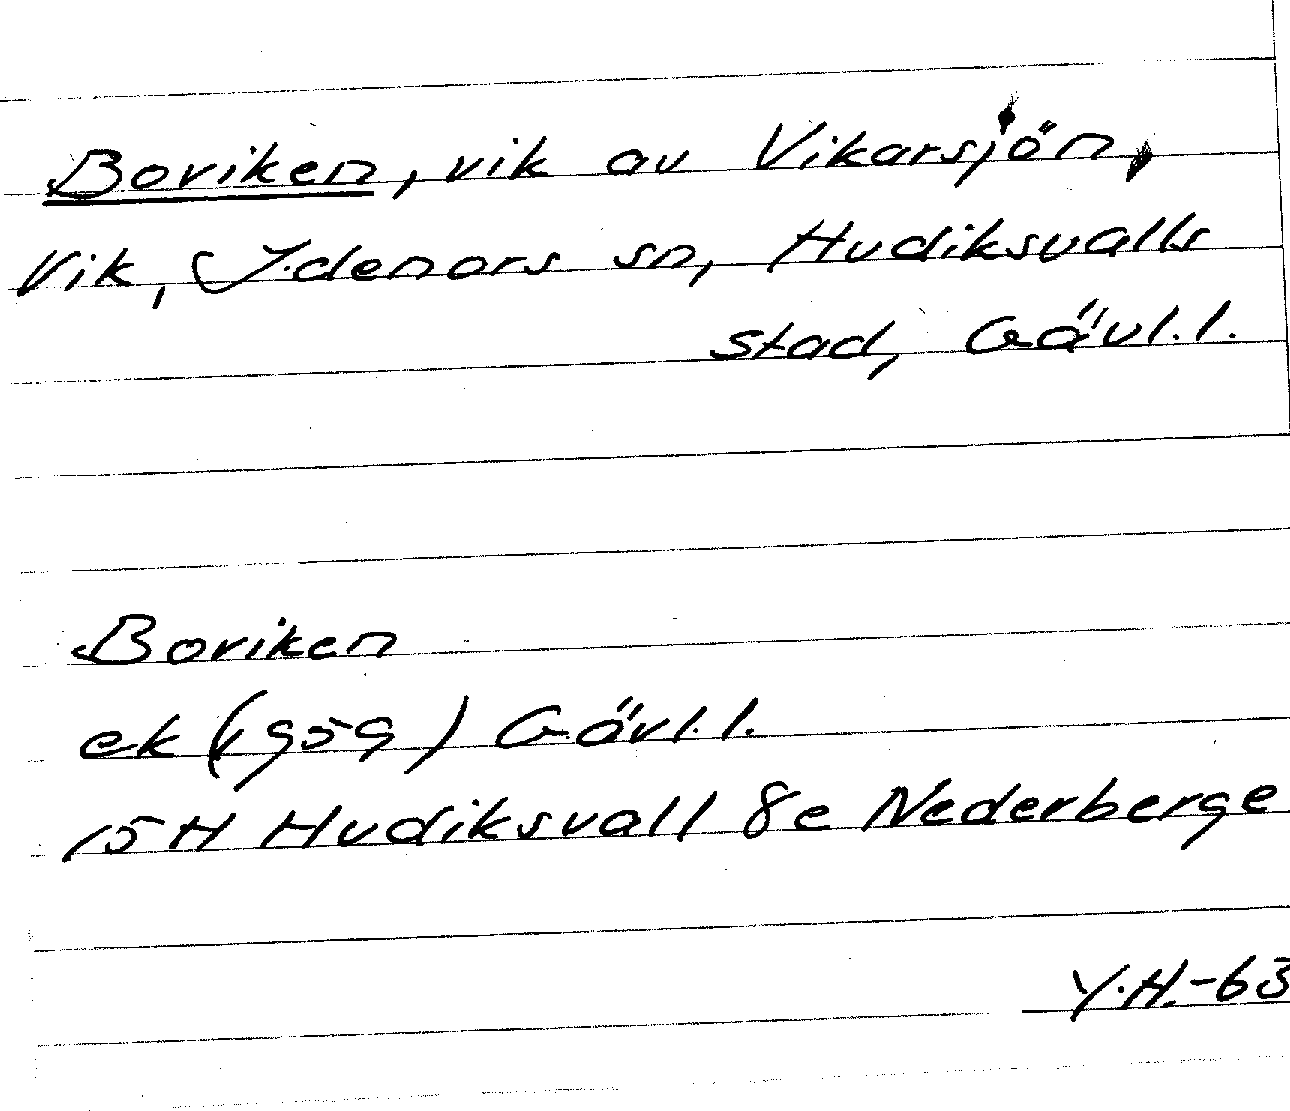 Boriken, vik av Vikarsjön,
Vik, Idenors sn, Hudiksvalls
stad, Gävl.l.
Boriken
ek (1959) Gävl.l.
15H Hudiksvall 8e Nederberge
Y.H.-63